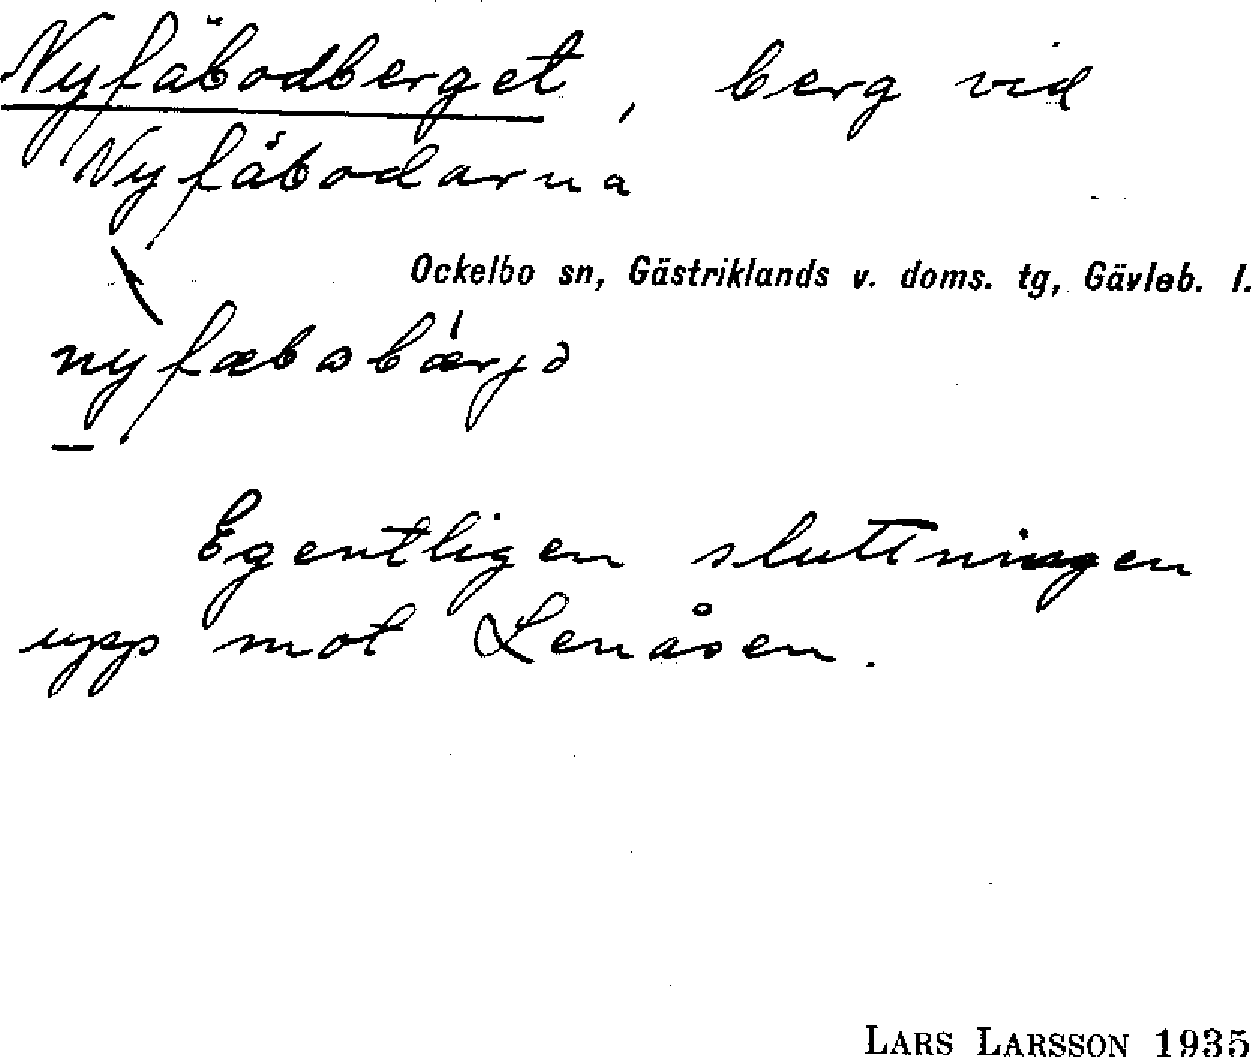 Nyfäbodberget, berg vid
Nyfäbodarna
Ockelbo sn, Gästriklands v. doms. tg, Gävleb. l.
nyfæbobærjə
Egentligen sluttningen
upp mot Lenåsen.
LARS LARSSON 1935